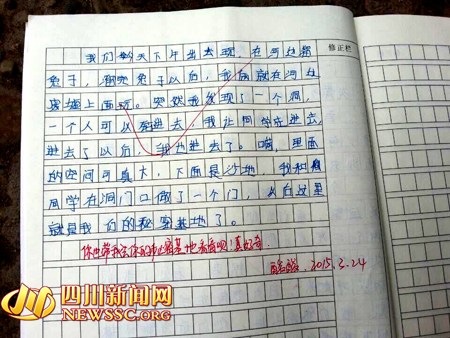 修正栏
我们昨天下午出去玩，在河边都
兔子，
以后，我俩就在河边
上面玩。突然我发现了一个洞，
一个人可以爬进去，我让同学先进去，
进去了以后，我也进去了。哨，里面
的空间可真大，下面是沙地，我和
同学在洞门口做了一个门，从后这里
就是我们的秘密基地了。
你也带我去你的秘密基地看看吧！真好奇
2015.3.24
四川新闻网
NEWSSC.ORG